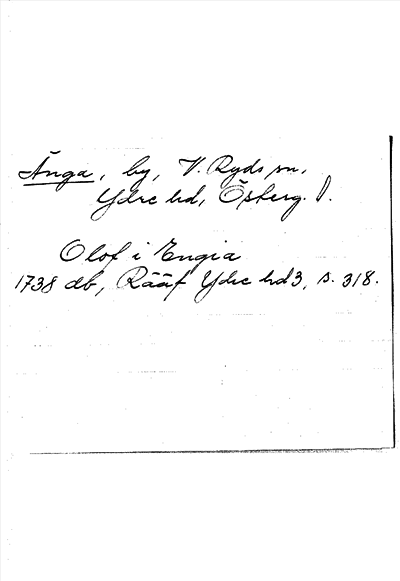 Änga, by, V. Ryds sn,
Ydre hd, Österg. l.
Olof i Engia
1738 db, Rääf Ydre hd 3, s. 318.